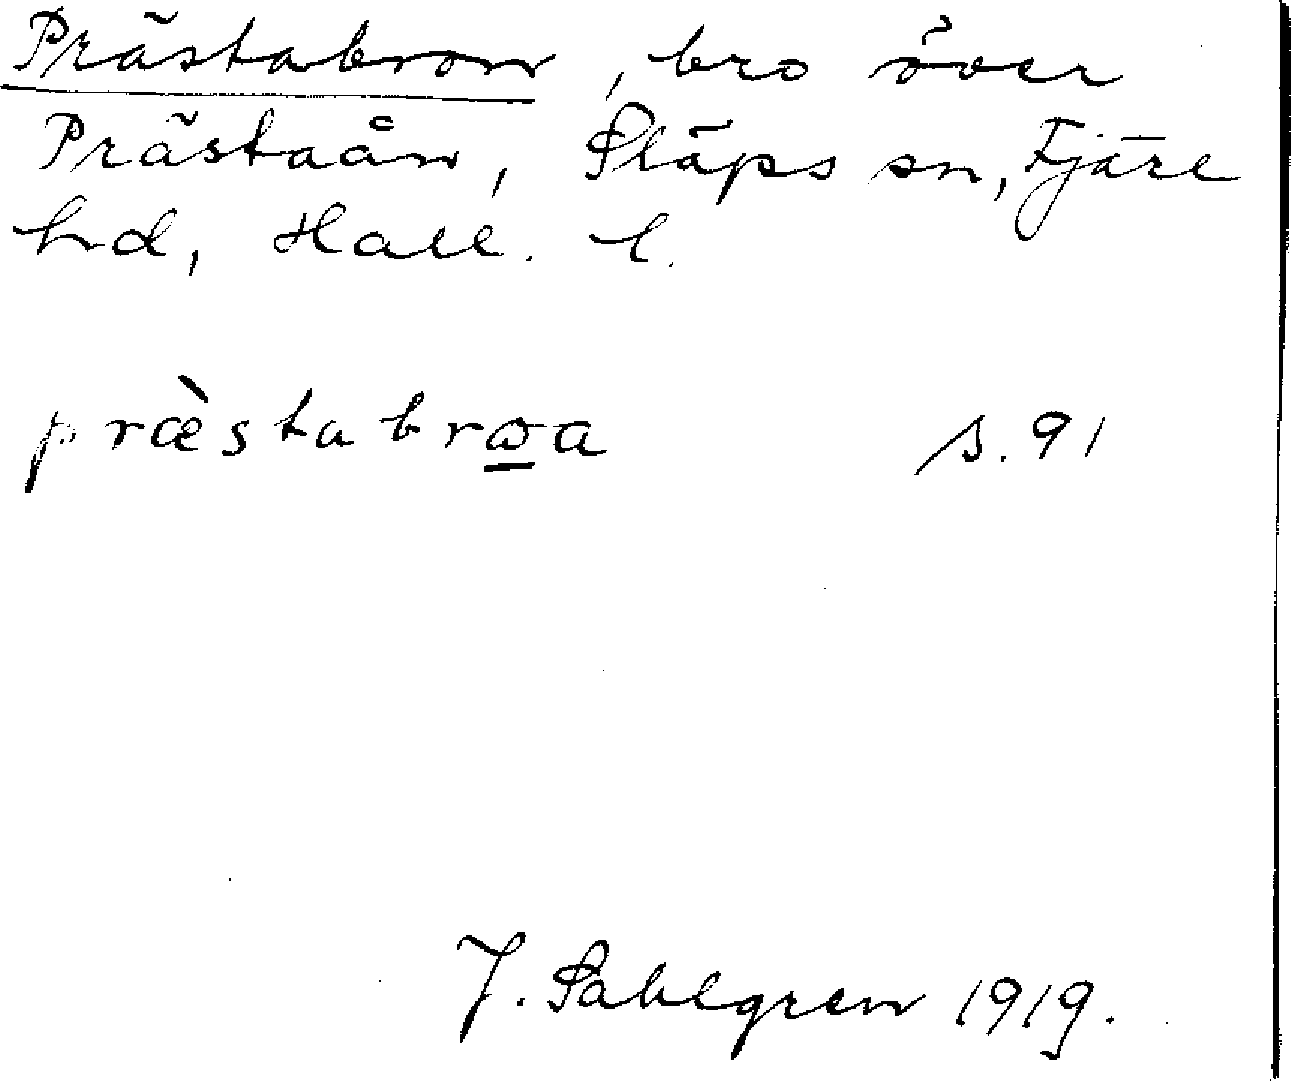 Prästabron, bro över
Prästaån, Släps sn, Fjäre
hd, Hall. l.
præ̀stabrɷ̲a s. 91
J. Sahlgren 1919.